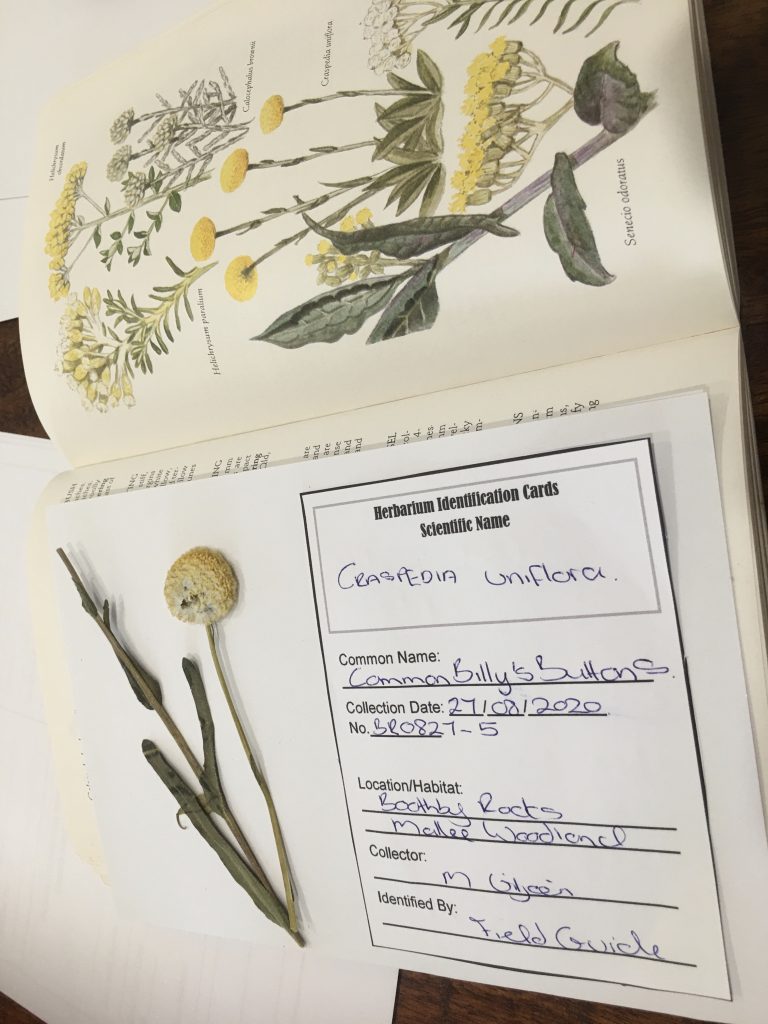 Helichrysum
Calocephalus brownii
Craspedia uniflora
Helichrysum paralium
Senecio odoratus
Herbarium Identification Cards
Scientific Name
CRASPEDIA uniflora.
Common Name:
Common Billy's Buttons.
Collection Date: 27/08/2020
No. BR0827-5
Location/Habitat:
Boothby Rocks
Mallee Woodland
Collector:
M
Identified By:
Field Guide